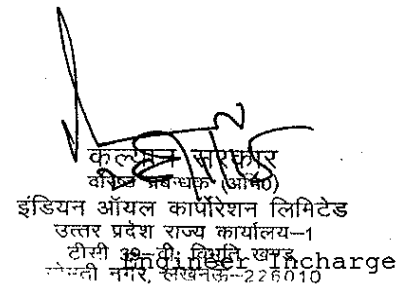 कल्यान सरकार
वरिष्ठ प्रबन्धक (अभि०)
इंडियन ऑयल कार्पोरेशन लिमिटेड
उत्तर प्रदेश राज्य कार्यालय–1
टीसी 39–वी, विभूति खण्ड
गोमती नगर, लखनऊ–226010
Engineer Incharge